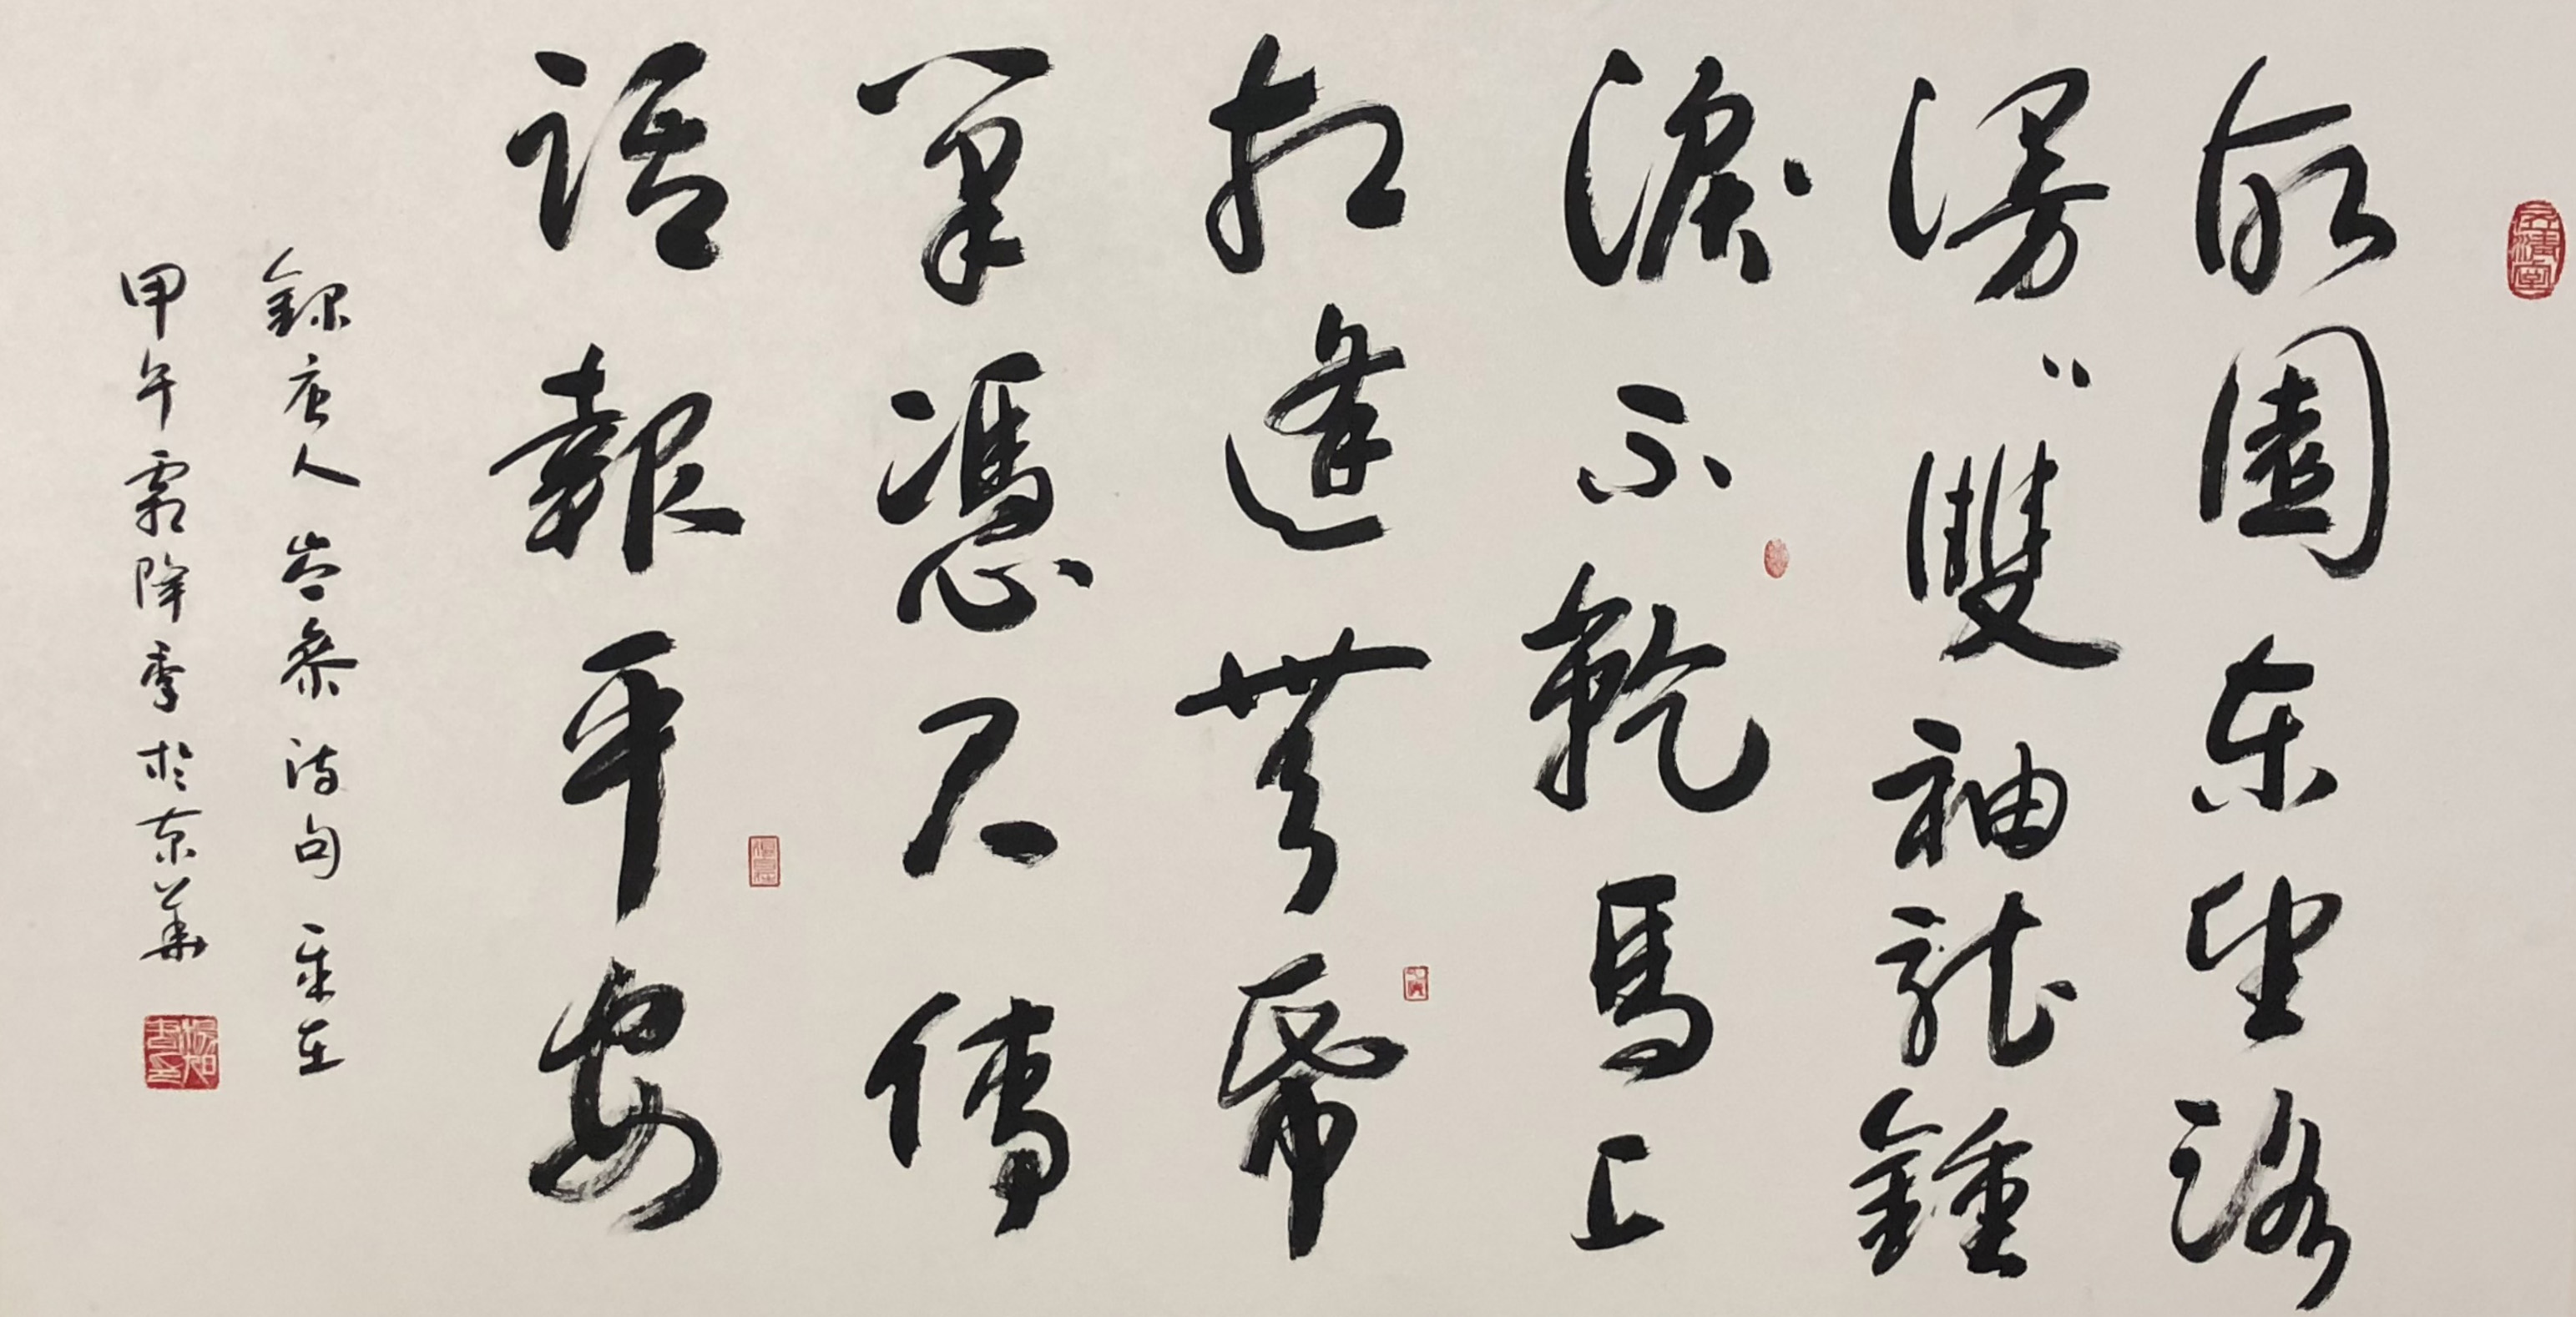 故園東望路
漫〻雙袖龍鍾
淚不乾馬上
相逢無帋
筆憑君傳
語報平安
錄唐人岑參詩句歲在
甲午霜降季於京華